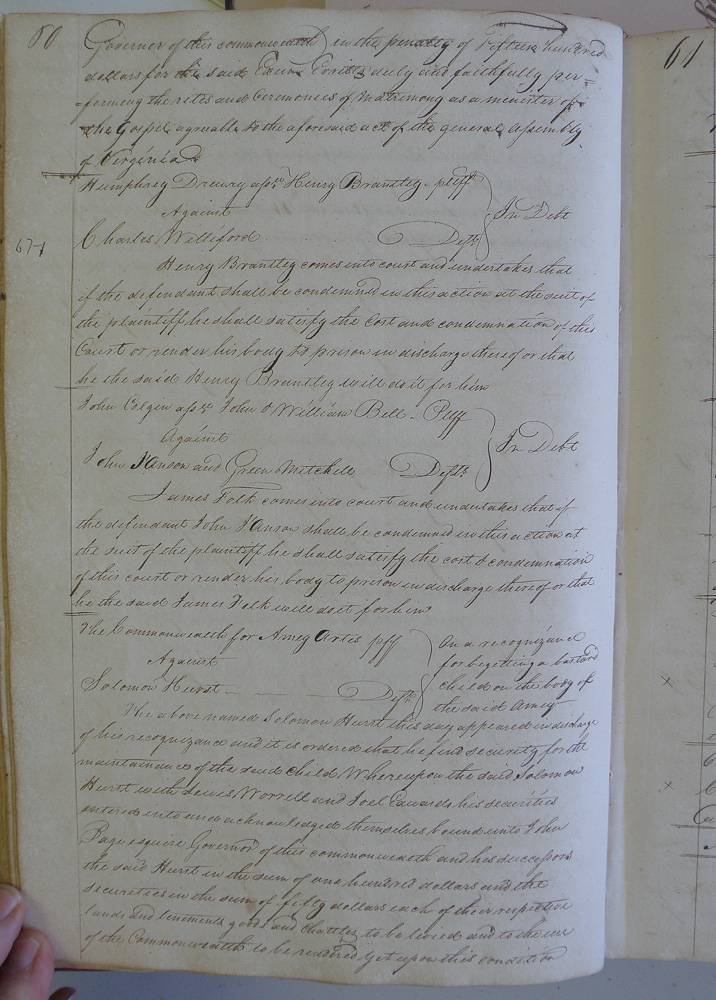 60
Governor of this commonwealth) in the penalty of Fifteen hundred
dollars for the said duly and faithfully per=
=forming the rites and Ceremonies of Matrimony as a minister of
the Gospel agreeable to the aforesaid act of the general Assembly
of Virginia
Humphrey Drewry asse Henry Brantley pltff
Against
In Debt
Charles Williford Deft
67
Henry Brantley comes into court and undertakes that
if the defendant shall be condemned in this action at the suit of
the plaintiff he shall satisfy the Cost and condemnation of this
Court or render his body to prison in discharge thereof or that
he the said Henry Brantley will do it for him
John Colgin asse John & William Bell Pltff
Against
In Debt
John J'Anson and Green Mitchell Defts
James Folk comes into court and undertakes that if
the defendant John J'Anson shall be condemned in this action at
the suit of the plaintiff he shall satisfy the cost & condemnation
of this court or render his body to prison in discharge thereof or that
he the said James Folk will do it for him
The Commonwealth for Amey Artis plff
Against
Solomon Hurst Deft
On a recognizance
for begetting a bastard
child on the body of
the said Amey
The above named Solomon Hurst this day appeared in discharge
of his recognizance and it is ordered that he find security for the
maintainance of the said child Whereupon the said Solomon
Hurst with Lewis Worrell and Joel Edwards his securities
entered into and acknowledged themselves bound unto John
Page esquire Governor of this commonwealth and his successors
the said Hurst in the sum of one hundred dollars and the
securities in the sum of fifty dollars each of their respective
lands and tenements goods and chattles to be levied and to the use
of the Commonwealth to be rendered. Yet upon this condition
61